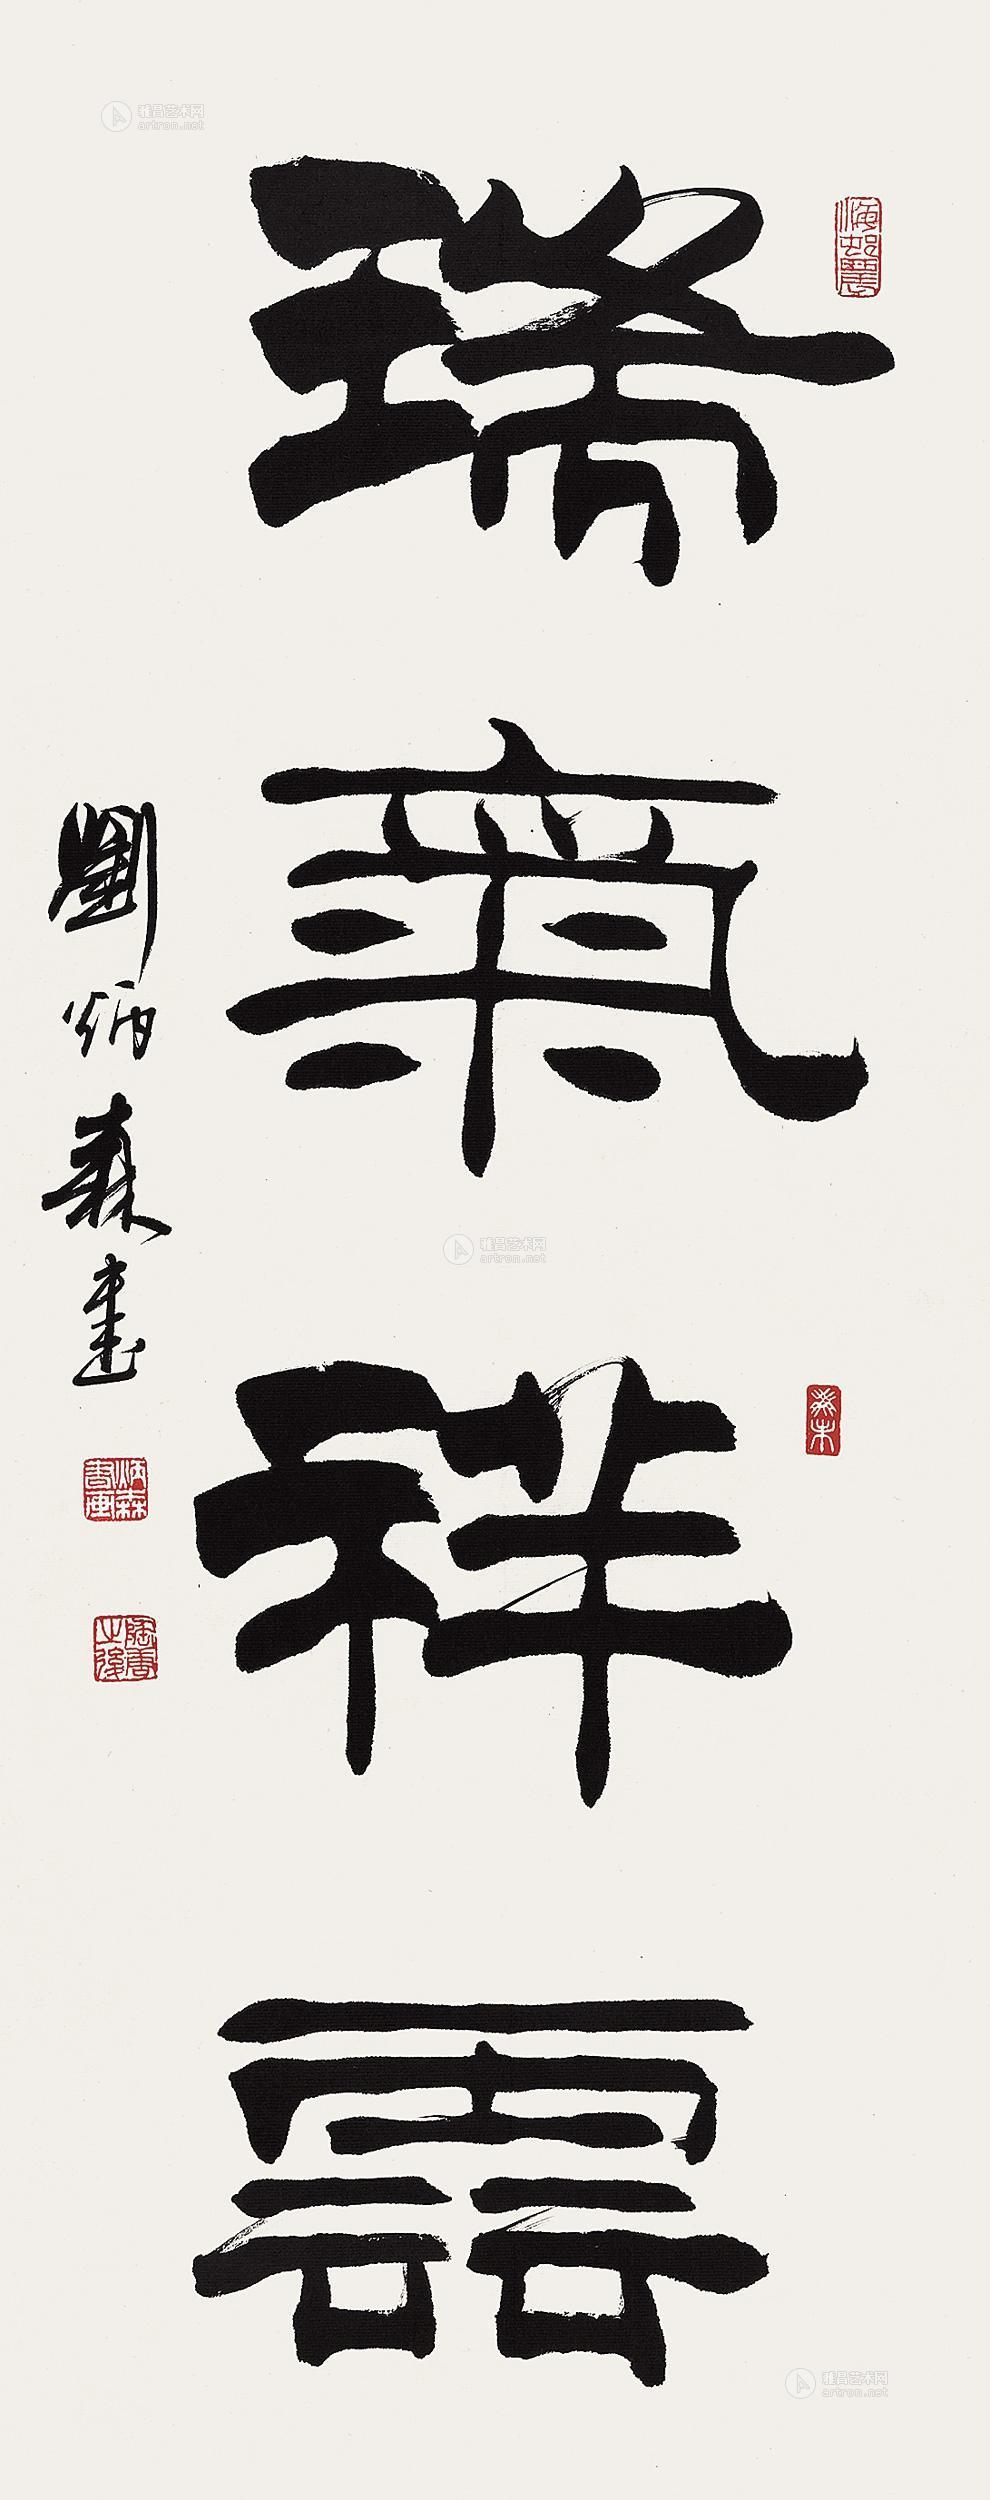 瑞氣祥雲
劉炳森書
炳森書画
陶唐之後
雅昌艺术网
artron.net
雅昌艺术网
artron.net
雅昌艺术网
artron.net